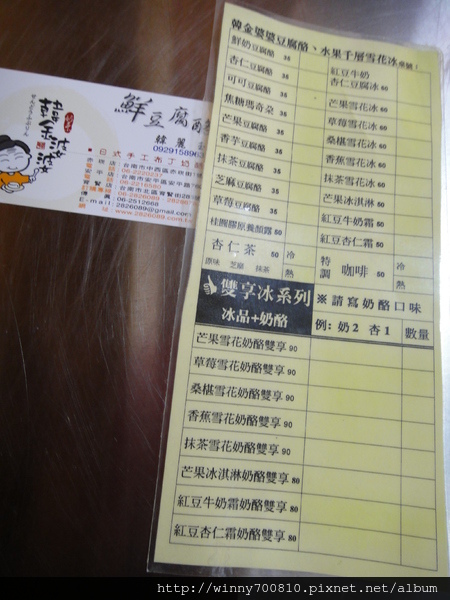 韓金婆婆豆腐酪、水果千層雪花冰
鮮奶豆腐酪 35
杏仁豆腐酪 35
可可豆腐酪 35
焦糖瑪奇朵 35
芒果豆腐酪 35
香芋豆腐酪 35
抹茶豆腐酪 35
芝麻豆腐酪 35
草莓豆腐酪 35
桂圓膠原養顏露 50
杏仁茶 50
原味 芝麻 抹茶
冷
熱
紅豆牛奶
杏仁豆腐冰 60
芒果雪花冰 60
草莓雪花冰 60
桑椹雪花冰 60
香蕉雪花冰 60
抹茶雪花冰 60
芒果冰淇淋 60
紅豆牛奶霜 50
紅豆杏仁霜 50
特調 咖啡 50
冷
熱
雙享冰系列
冰品+奶酪
※請寫奶酪口味
例:奶2 杏1
數量
芒果雪花奶酪雙享 90
草莓雪花奶酪雙享 90
桑椹雪花奶酪雙享 90
香蕉雪花奶酪雙享 90
抹茶雪花奶酪雙享 90
芒果冰淇淋奶酪雙享 80
紅豆牛奶霜奶酪雙享 80
紅豆杏仁霜奶酪雙享 80
韓金婆婆
鮮豆腐酪
韓麗
0929158
日式手工布丁奶酪
06-2220237
06-2512669
2826089@gmail.com
http://winny700810.pixnet.net/album